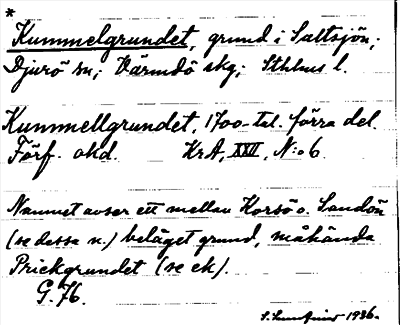 *
Kummelgrundet, grund i Saltsjön;
Djurö sn; Värmdö skg; Sthlms l.
Kummellgrundet, 1700-tal. förra del.
Förf. okd. KrA, XXII, N:o 6.
Namnet avser ett mellan Korsö o. Sandön
(se dessa n.) beläget grund, måhända
Prickgrundet (se ek).
G. 76.
1936.